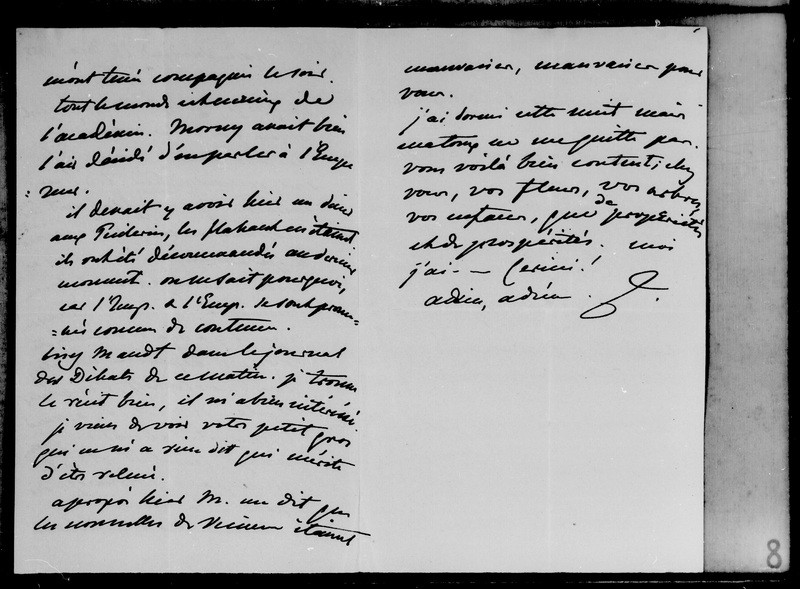 m'ont tenu compagnie le soir.
tout le monde de
l'académie. Morny avait bien
l'air décidé d'en parler à l'Empe
= reur.
il devait y avoir hier un diner
aux Tuileries, les flahaut en étaient
ils ont été décommandés au dernier
moment. on ne sait pourquoi,
car l'Emp. & l'Emp. se sont prome=
=nés comme de coutume.
lisez Mandt dans le journal
des Débats de ce matin. je trouve
le récit bien, il m'a bien intéressé.
je viens de voir votre petit gros
qui ne m'a rien dit qui mérite
d'être relevé.
apropos hier M. me dit que
les nouvelles de Vienne étaient
mauvaises, mauvaises pour
vous.
j'ai dormi cette nuit mais
ma toux ne me quitte pas.
vous voilà bien content; chez
vous, vos fleurs, vos arbres
vos enfants, que de propriétés
et de prospérités. moi
j'ai - - Cerini!
adieu, adieu.
8